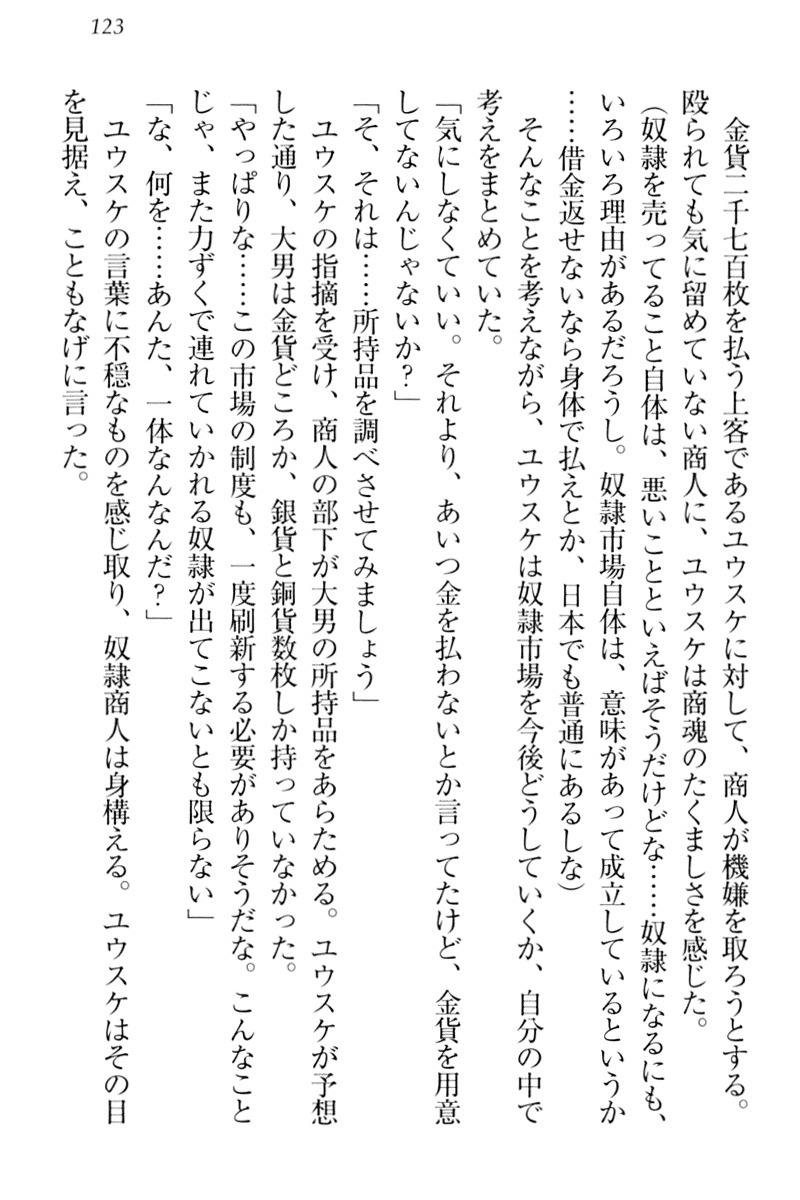 123
　金貨二千七百枚を払う上客であるユウスケに対して、商人が機嫌を取ろうとする。
殴られても気に留めていない商人に、ユウスケは商魂のたくましさを感じた。
（奴隷を売ってること自体は、悪いことといえばそうだけどな……奴隷になるにも、
いろいろ理由があるだろうし。奴隷市場自体は、意味があって成立しているというか
……借金返せないなら身体で払えとか、日本でも普通にあるしな）
　そんなことを考えながら、ユウスケは奴隷市場を今後どうしていくか、自分の中で
考えをまとめていた。
「気にしなくていい。それより、あいつ金を払わないとか言ってたけど、金貨を用意
してないんじゃないか？」
「そ、それは……所持品を調べさせてみましょう」
　ユウスケの指摘を受け、商人の部下が大男の所持品をあらためる。ユウスケが予想
した通り、大男は金貨どころか、銀貨と銅貨数枚しか持っていなかった。
「やっぱりな……この市場の制度も、一度刷新する必要がありそうだな。こんなこと
じゃ、また力ずくで連れていかれる奴隷が出てこないとも限らない」
「な、何を……あんた、一体なんなんだ？」
　ユウスケの言葉に不穏なものを感じ取り、奴隷商人は身構える。ユウスケはその目
を見据え、こともなげに言った。